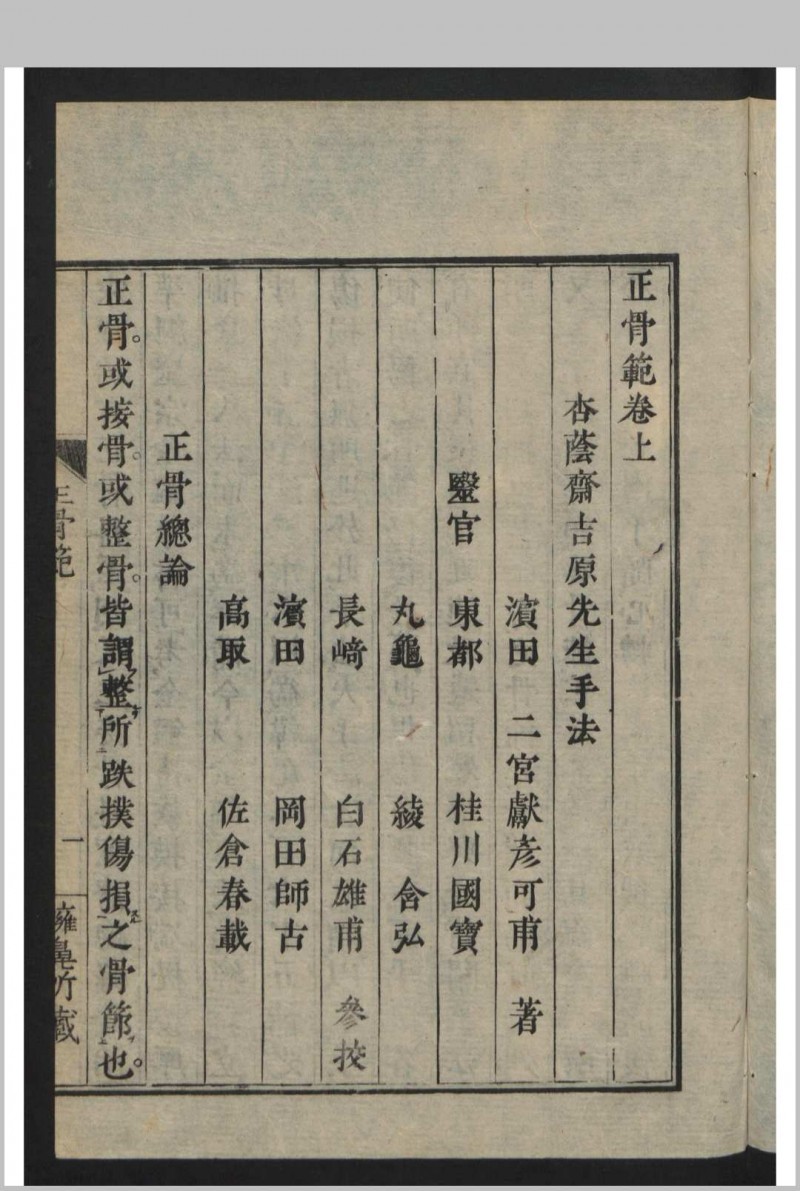 正骨範卷上
杏蔭齋吉原先生手法
濱田 二宮獻彥可甫 著
毉官 東都 桂川國寶
丸龜 綾 含弘
長﨑 白石雄甫 參挍
濱田 岡田師古
高取 佐倉春載
正骨總論
正骨。或按骨。或整骨。皆謂整所跌撲傷損之骨節也。
正骨範 一